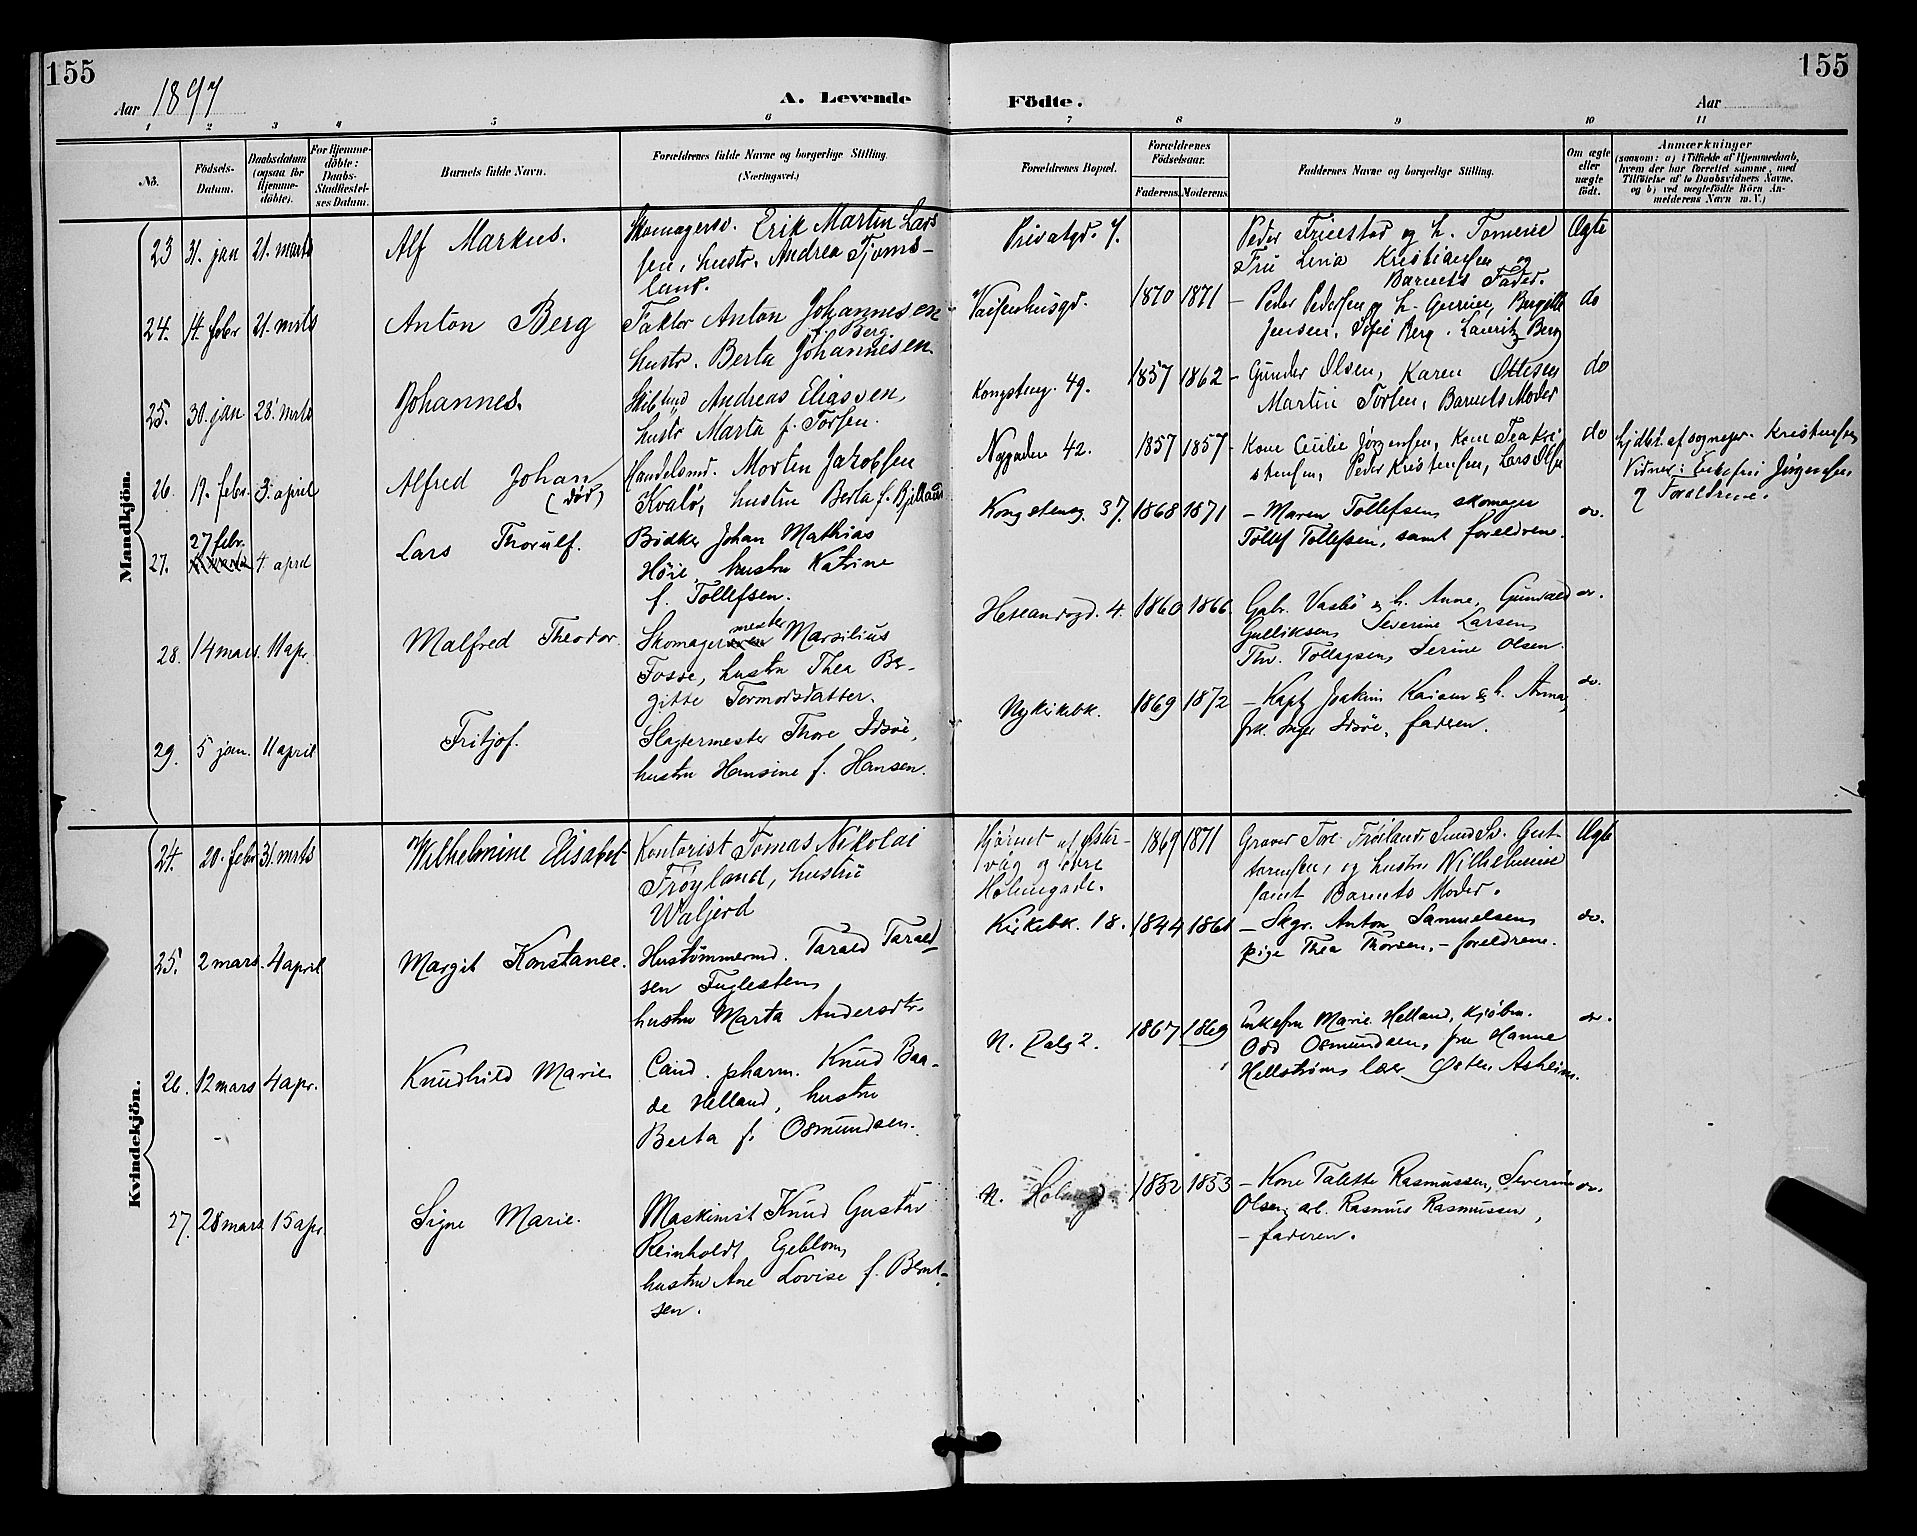 155
155
Aar 1897
A. Levende
Födte.
Aar
1 2 3 4 5 6 7 8 9 10 11
No.
Födsels-
Datum.
Daabsdatum
(ogsaa for
Hjemme-
döbte).
For Hjemme-
döbte:
Daabs-
Stadfæstel-
ses Datum.
Barnets fulde Navn.
Forældrenes fulde Navne og borgerlige Stilling.
(Næringsvei.)
Forældrenes Bopæl.
Forældrenes
Födselsaar.
Faderens. Moderens.
Faddernes Navne og borgerlige Stilling.
Om ægte
eller
uægte
födt.
Anmærkninger
(saasom: a) i Tilfælde af Hjemmedaab,
hvem der har forrettet samme, med
Tilföielse af to Daabsvidners Navne,
og b) ved uægtefödte Börn An-
melderens Navn m. V.)
Mandkjön.
23 31. jan 21. marts Alf Markus.
Skomagersv. Erik Martin Lars
sen, hustr. Andrea Tjoms-
land.
Privatgd. 7.
Peder og h. Tomine
Fru Lina Kristiansen og
Barnets Fader.
Ægte
24. 14 febr 21. mrts Anton Berg
Faktor Anton Johannesen
f. Berg
hustr. Berta Johannesen
Vaisenhusgd. 1870 1871
– Peder Pedersen og h. Gurine, Bergitte
Jensen, Sofie Berg. Lauritz Berg
do
25. 30. jan 28. mrts Johannes.
Andreas Eliassen,
hustr Marta f. Torsen.
Kongsteng. 49. 1857 1862
– Gunder Olsen, Karen Ottesen
Martin Torsen, Barnets Moder
do
26. 19. febr 3. april Alfred Johan
(död)
Handelsmd. Morten Jakobsen
Kvalö, hustru Berta f. Bjelland
Nygaden 42. 1857 1857
– Kone Cecilie Jørgensen, Kone Tea Kri
stensen, Peder Kristensen, Lars Olsen
do
hjdbt. af sognepr. Kristensen
Vidner: Enkefru Jørgensen
og Forældrene.
27. 27 febr. 4 april Lars Thorulf.
Bødker Johan Mathias
Høie, hustru Katrine
f. Tollefsen.
Kongsteng. 37. 1868 1871
– Maren Tollefsen, skomager
Tollef Tollefsen, samt foreldrene.
do.
28. 14 mars. 11 apr. Malfred Theodor.
mester
Skomagersven Marsilius
Fosse, hustru Thea Ber-
gitte Tormodsdatter.
Hetlandsgd. 4. 1860 1866
Gabr. Vasbø & h. Anne, Gunvald
Gulliksen, Severine Larsen,
Thv. Tollagsen, Serine Olsen.
do.
29. 5 jan. 11 april Fritjof.
Slagtermester Thore Idsöe,
hustru Hansine f. Hansen.
Nykirkebk. 1869 1872
– Kapt Joakim Kaisen & h. Anna,
frk. Inger Idsöe, faderen.
do.
Kvindekjön.
24. 20. febr 31. mrts Wilhelmine Elisabet
Kontorist Tomas Nikolai
Frøyland, hustru
Waljerd
Hjørnet af Øster-
våg og øvre
Holmegade.
1869 1871
Graver Tore Frøiland, Gut
tormsen, og hustru Wilhelmine
samt Barnets Moder.
Ægte
25. 2 mars. 4 april Margit Konstance.
Hustømmermd. Tarald Tarald
sen Fuglesten,
hustru Marta Andersdtr.
Kirkebk. 18. 1844 1861
– Skgr. Anton Samuelsen,
pige Thea Thorsen, – foreldrene.
do.
26. 12 mars 4 apr. Knudhild Marie
Cand. pharm. Knud Baa-
de Helland, hustru
Berta f. Osmundsen.
N. Dalg 2. 1867 1869
Enkefru Marie Helland, kjøbm.
Odd Osmundsen, fru Hanne
Hellstrøm, lærer Østen Asheim.
do.
27. 28 mars 15 apr. Signe Marie.
Maskinist Knud Gustav
Reinholdt Egeblom,
hustru Ane Lovise f. Bernt-
sen.
N. Holmegd. 1852 1853
– Kone Talette Rasmussen, Severine
Olsen, arb. Rasmus Rasmussen,
– faderen.
do.